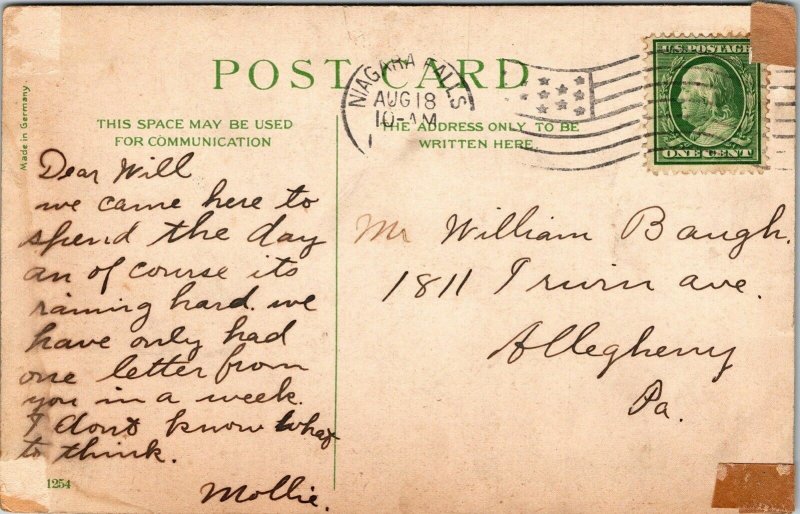 POST CARD
NIAGARA FALLS
AUG 18
10-AM
U.S. POSTAGE
ONE CENT
Made in Germany
THIS SPACE MAY BE USED
FOR COMMUNICATION
THE ADDRESS ONLY TO BE
WRITTEN HERE
Dear Will
we came here to
spend the day
an of course its
raining hard. we
have only had
one letter from
you in a week.
I dont know what
to think.
Mollie.
1254
Mr William Baugh.
1811 Irwin ave.
Allegheny
Pa.